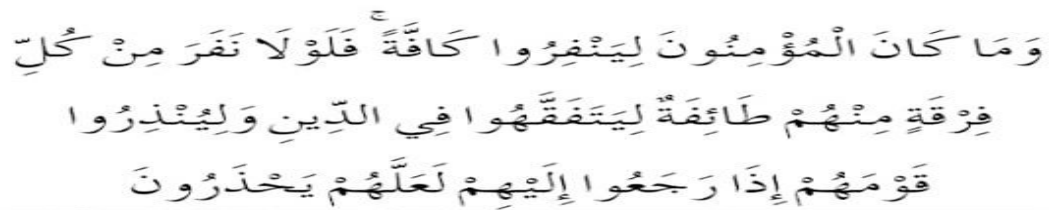 وَمَا كَانَ الْمُؤْمِنُونَ لِيَنْفِرُوا كَافَّةً ۚ فَلَوْلَا نَفَرَ مِنْ كُلِّ
فِرْقَةٍ مِنْهُمْ طَائِفَةٌ لِيَتَفَقَّهُوا فِي الدِّينِ وَلِيُنْذِرُوا
قَوْمَهُمْ إِذَا رَجَعُوا إِلَيْهِمْ لَعَلَّهُمْ يَحْذَرُونَ